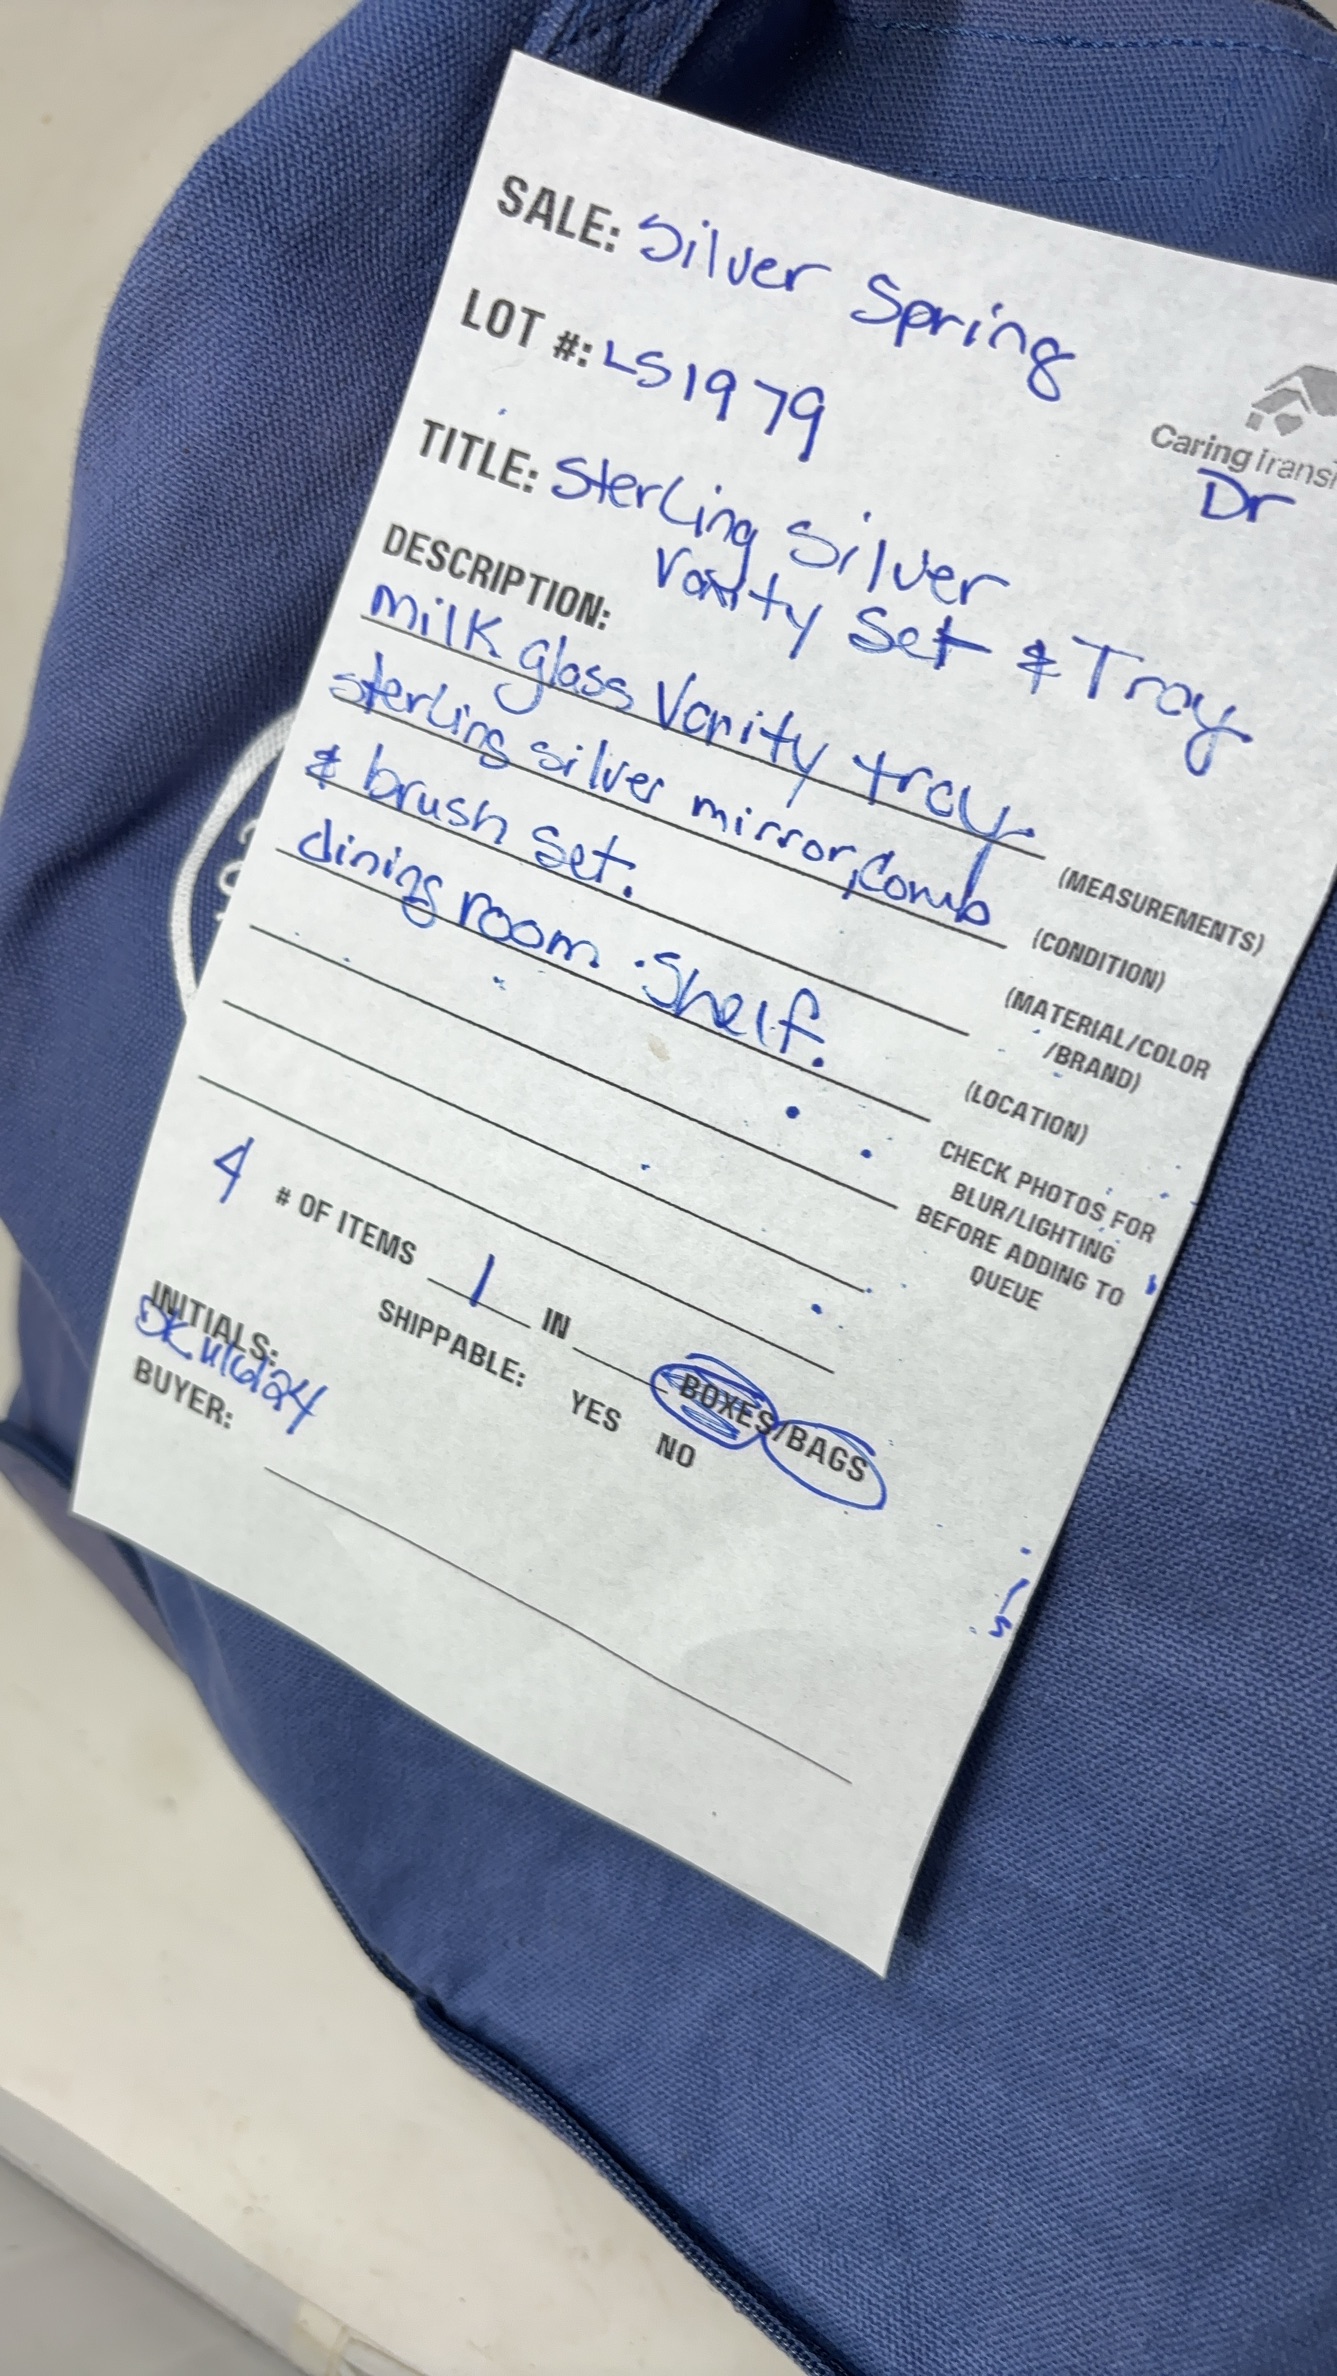 SALE: Silver Spring
LOT #: LS1979
CaringTransi
Dr
TITLE: Sterling Silver
Vanity Set & Tray
DESCRIPTION:
milk glass Vanity tray.
(MEASUREMENTS)
sterling silver mirror, Comb
(CONDITION)
& brush set.
(MATERIAL/COLOR
/BRAND)
dining room . Shelf.
(LOCATION)
CHECK PHOTOS FOR
BLUR/LIGHTING
BEFORE ADDING TO
QUEUE
4 # OF ITEMS 1 IN BOXES/BAGS
SHIPPABLE: YES NO
INITIALS:
DK 11/6/24
BUYER: